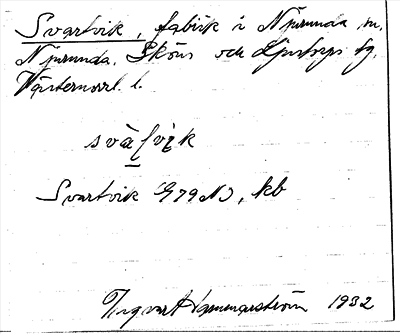 Svartvik, fabrik i Njurunda sn.
Njurunda, Sköns och Ljustorps tg.
Västernorrl. l.
Svartvik G79NJ, kb
Ingvar Hammarström 1932